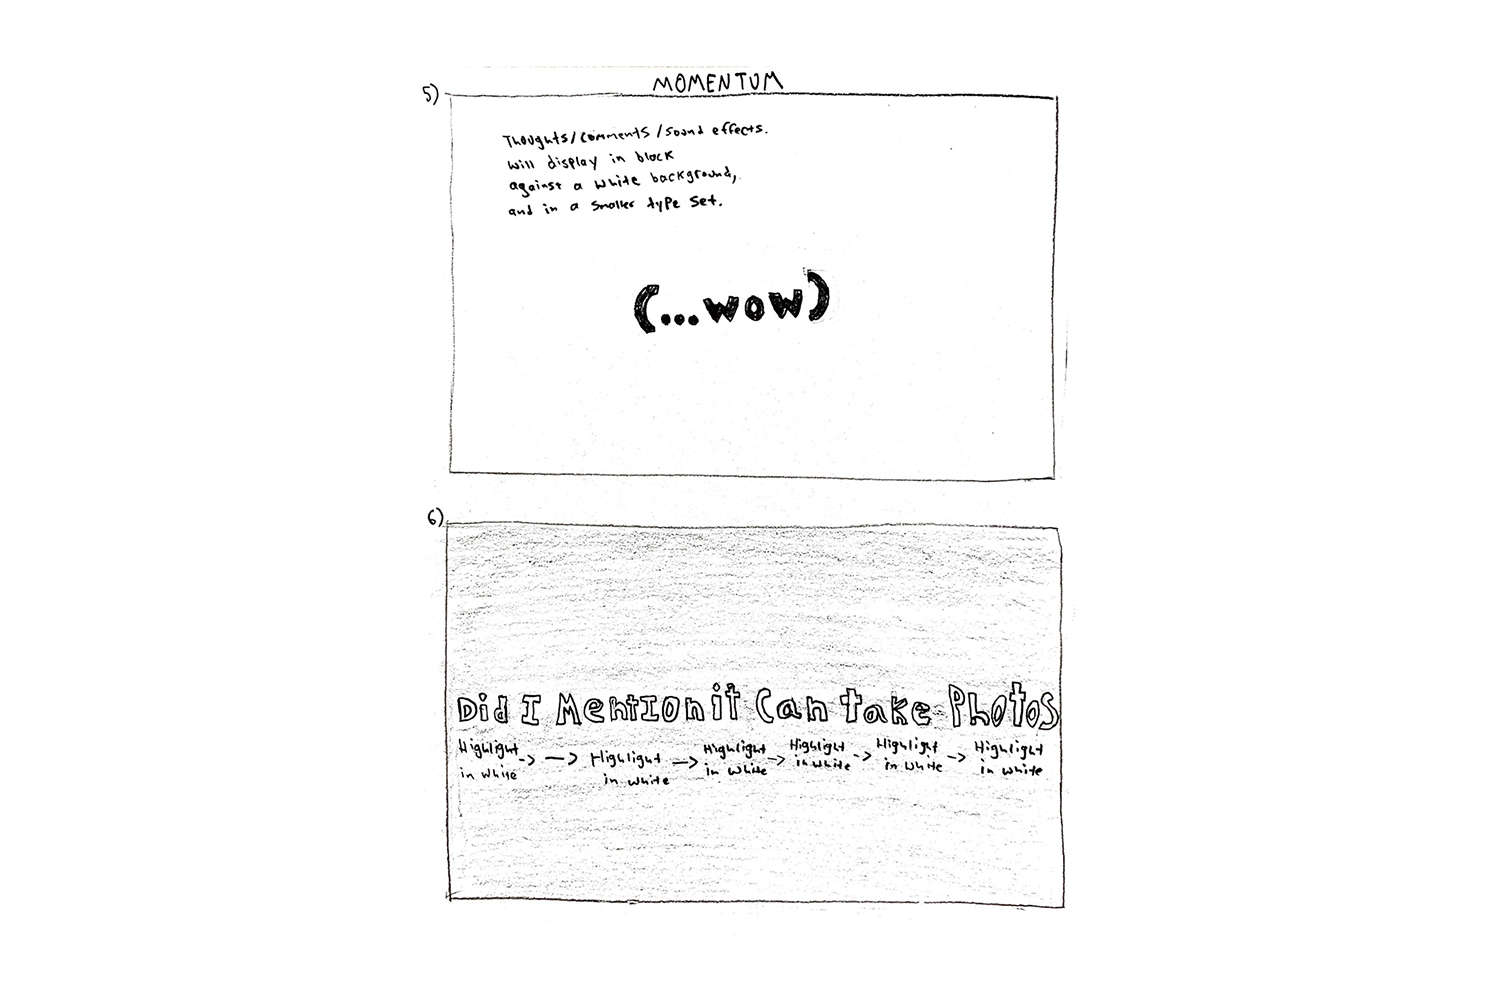 MOMENTUM
5)
Thoughts/Comments/sound effects.
will display in black
against a white background,
and in a smaller type set.
(...wow)
6)
Did I Mention it Can take Photos
Highlight -> -> Highlight -> Highlight -> Highlight -> Highlight -> Highlight
in white in white in white in white in white in white